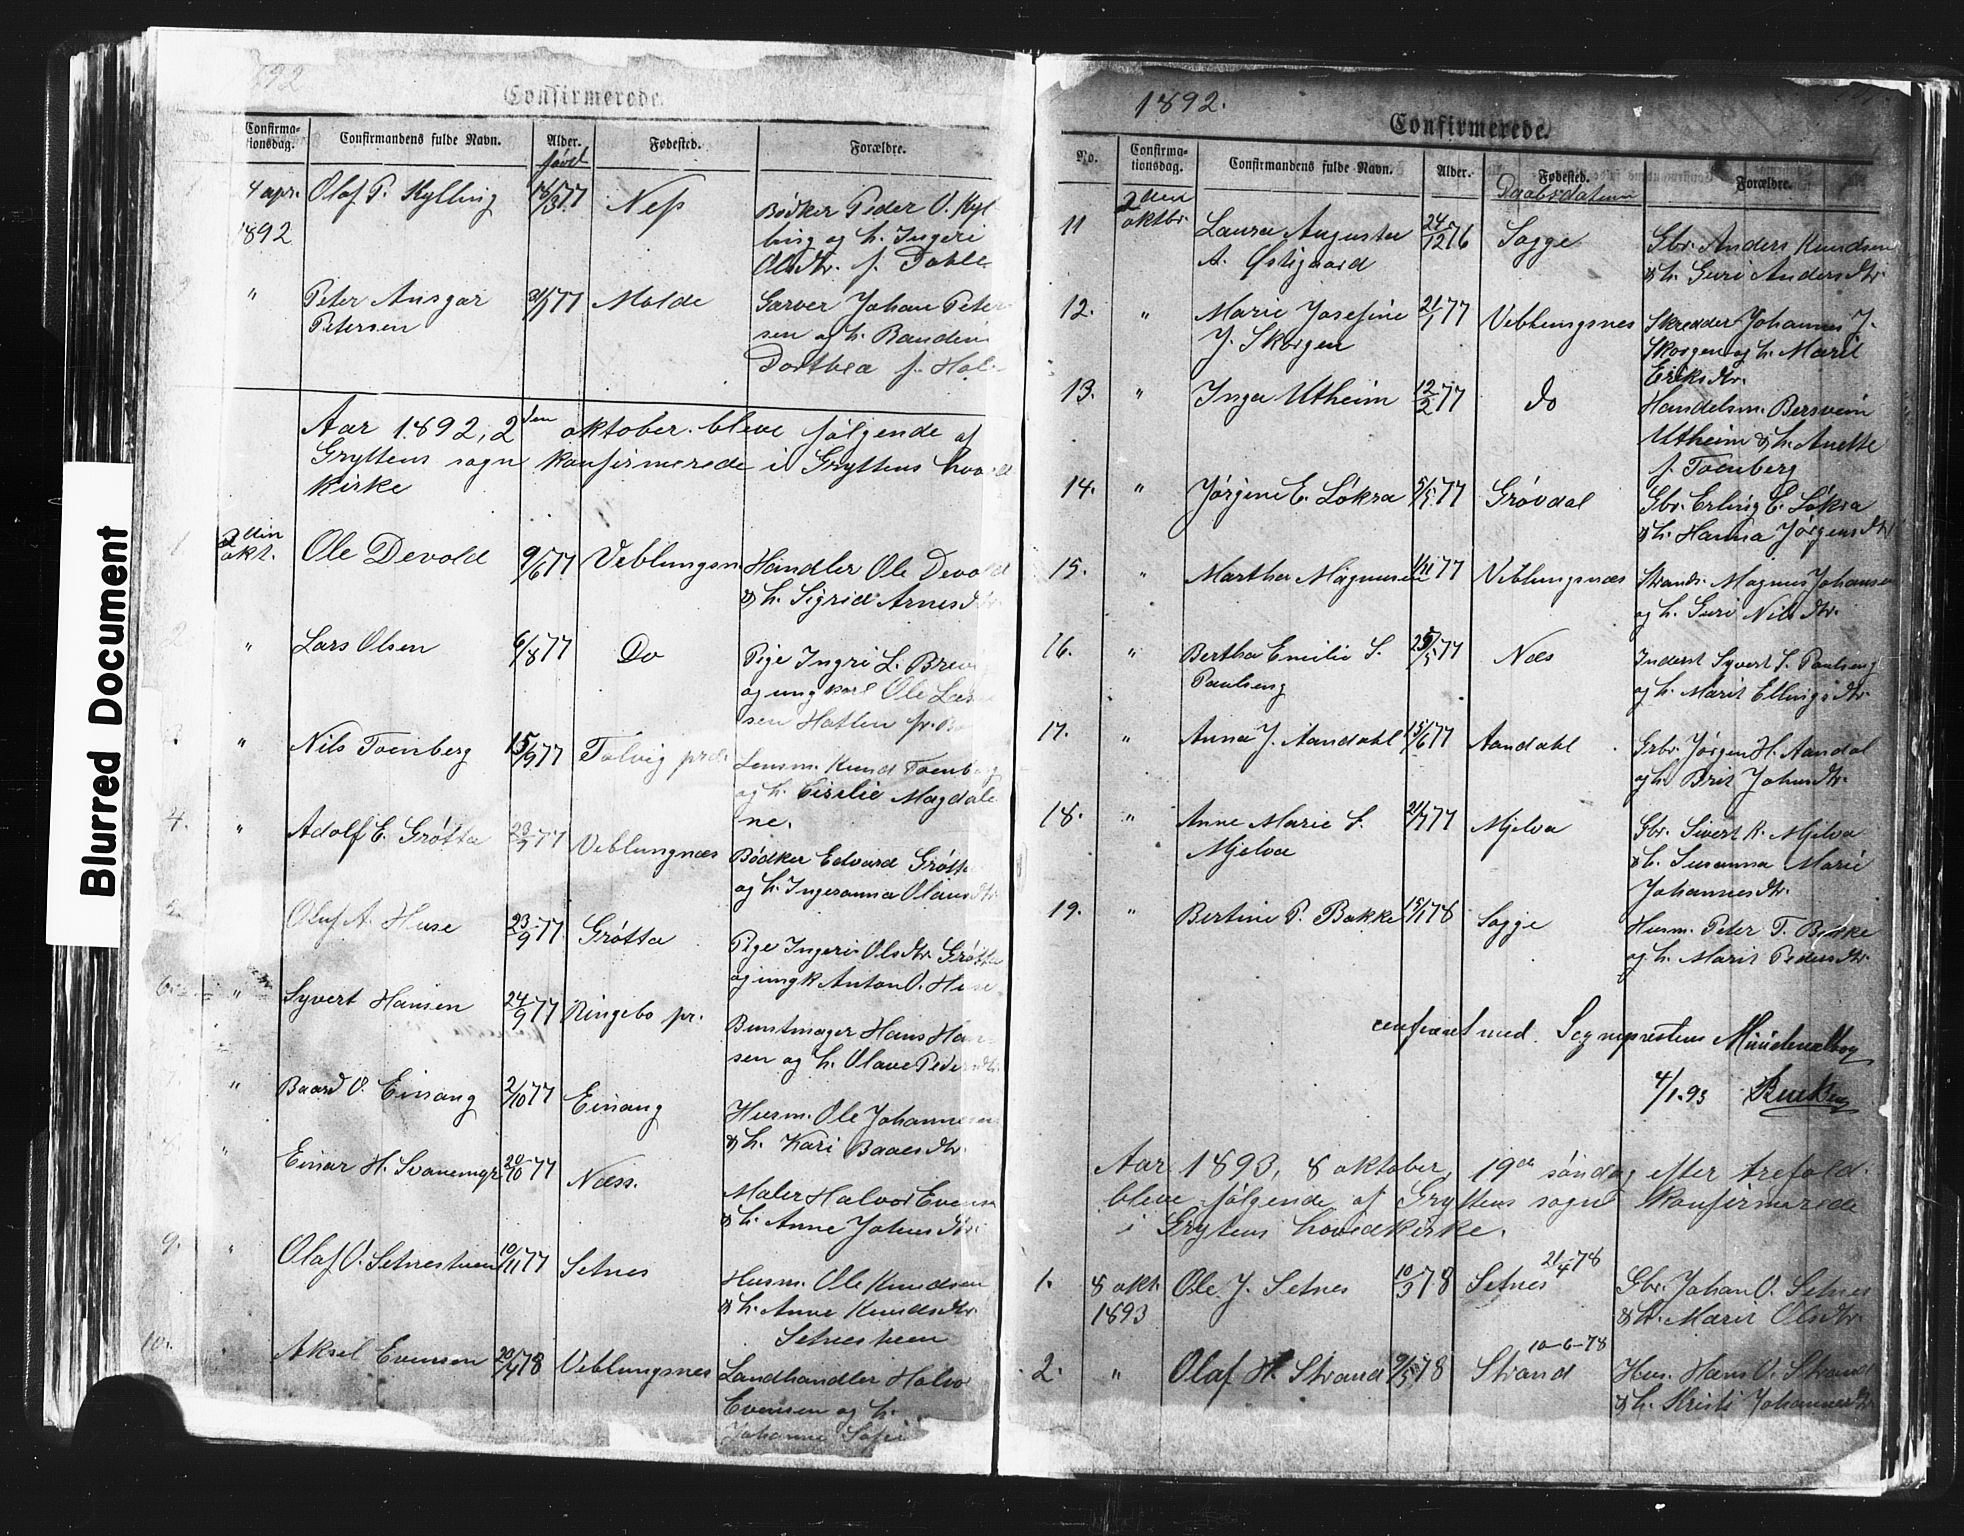 Blurred Document
1892
Confirmerede.
No.
Confirma-
tionsdag.
Confirmandens fulde Navn.
Alder.
født
Fødested.
Forældre.
4 apr.
1892
Olaf P. Kylling
18/3 77
Ness
Bødker Peder O. Kyl-
ling og h. Ingeri
Olsdtr. f. Dahle
"
Peter Ansgar
Petersen
77
Molde
Garver Johan Peter
sen og h. Randine
Dorthea f. Hol
Aar 1892, 2den oktober bleve følgende af
Gryttens sogn konfirmerede i Gryttens hoved
kirke
1
2den
okt.
Ole Devold
9/6 77
Veblungsn
Handler Ole Devold
& h. Sigrid Arnesdtr.
2
"
Lars Olsen
6/8 77
Do
Pige Ingri L. Brevig
og ungkarl Ole Lar
sen Hatlen
3.
"
Nils Toenberg
15/9 77
Talvig prd.
Lensm. Knud Toenberg
og h. Cisilie Magdale
ne.
4.
"
Adolf E. Grøtta
77
Veblungnæs
Bødker Edvard Grøtta
og h. Ingeranna Olausdtr
5.
Oluf A. Huse
23/9 77
Grøtta
Pige Ingeri Olsdtr. Grøtta
og ungk Anton O. Huse
6.
"
Syvert Hansen
24/9 77
Ringebo pr.
Buntmager Hans Han
sen og h. Olave Pedersdtr
"
Baard O. Einang
2/10 77
Einang
Husm. Ole Johannesen
& h. Kari Baardsdtr.
"
Einar H. Svanemyr
20/10 77
Næss.
Maler Halvor Evensen
& h. Anne Johnsdtr
9.
"
Olaf O. Setnesteen
10/11 77
Setnes
Husm. Ole Knudsen
& h. Anne Knudsdtr.
10.
Aksel Evensen
78
Veblungsnes
Landhandler Halvor
Evensen og h.
Johanne Sofie
1892.
Confirmerede.
No.
Confirma-
tionsdag.
Confirmandens fulde Navn.
Alder.
Fødested.
Daabsdatum
Forældre.
11
2den
oktbr.
Laura Augusta
A. Østigaard
24/12 76
Sogge
Gbr. Anders Knudsen
& h. Guri Andersdtr.
12.
"
Marie Josefine
J. Skorgen
21/1 77
Veblungsnes
Skredder Johannes J.
Skorgen og h. Marit
Eriksdtr.
13.
"
Inga Utheim
12/2 77
do
Handelsm. Bersvein
Utheim & h. Anette
f. Toenberg
14.
"
Jørgine E. Løkra
5/5 77
Grøvdal
Gbr. Erling E. Løkra
& h. Hanna Jørgensdtr
15.
"
Martha Magnusen
77
Veblungsnæs
Strands. Magnus Johansen
og h. Guri Nilsdtr.
16.
"
Bertha Emilie S.
Paulseng
25/5 77
Næs
Inderst Syvert S. Paulseng
og h. Marit Ellingsdtr.
17.
"
Anna J. Aandahl
15/6 77
Aandahl
Grbr. Jørgen H. Aandal
og h. Brit Johnsdtr.
18.
"
Anne Marie S.
Mjelva
21/7 77
Mjelva
Gbr. Sivert K. Mjelva
& h. Susanna Marie
Johannesdtr.
19.
"
Bertine P. Bakke
15/1 78
Sogge
Husm. Peter T. Bakke
og h. Marit Pedersdtr.
confereret med Sogneprestens Ministerialbog
4/1.93
Aar 1893, 8 oktober, 19de søndag efter trefold.
bleve følgende af Gryttens sogn konfirmerede
i Gryttens hovedkirke.
1.
8 okt.
1893
Ole J. Setnes
10/3 78
21/4 78
Setnes
Gbr. Johan O. Setnes
& h. Marit Olsdtr.
2.
"
Olaf H. Strand
9/5 78
10-6-78
Strand
Hus. Hans O. Strand
& h. Kristi Johannesdtr